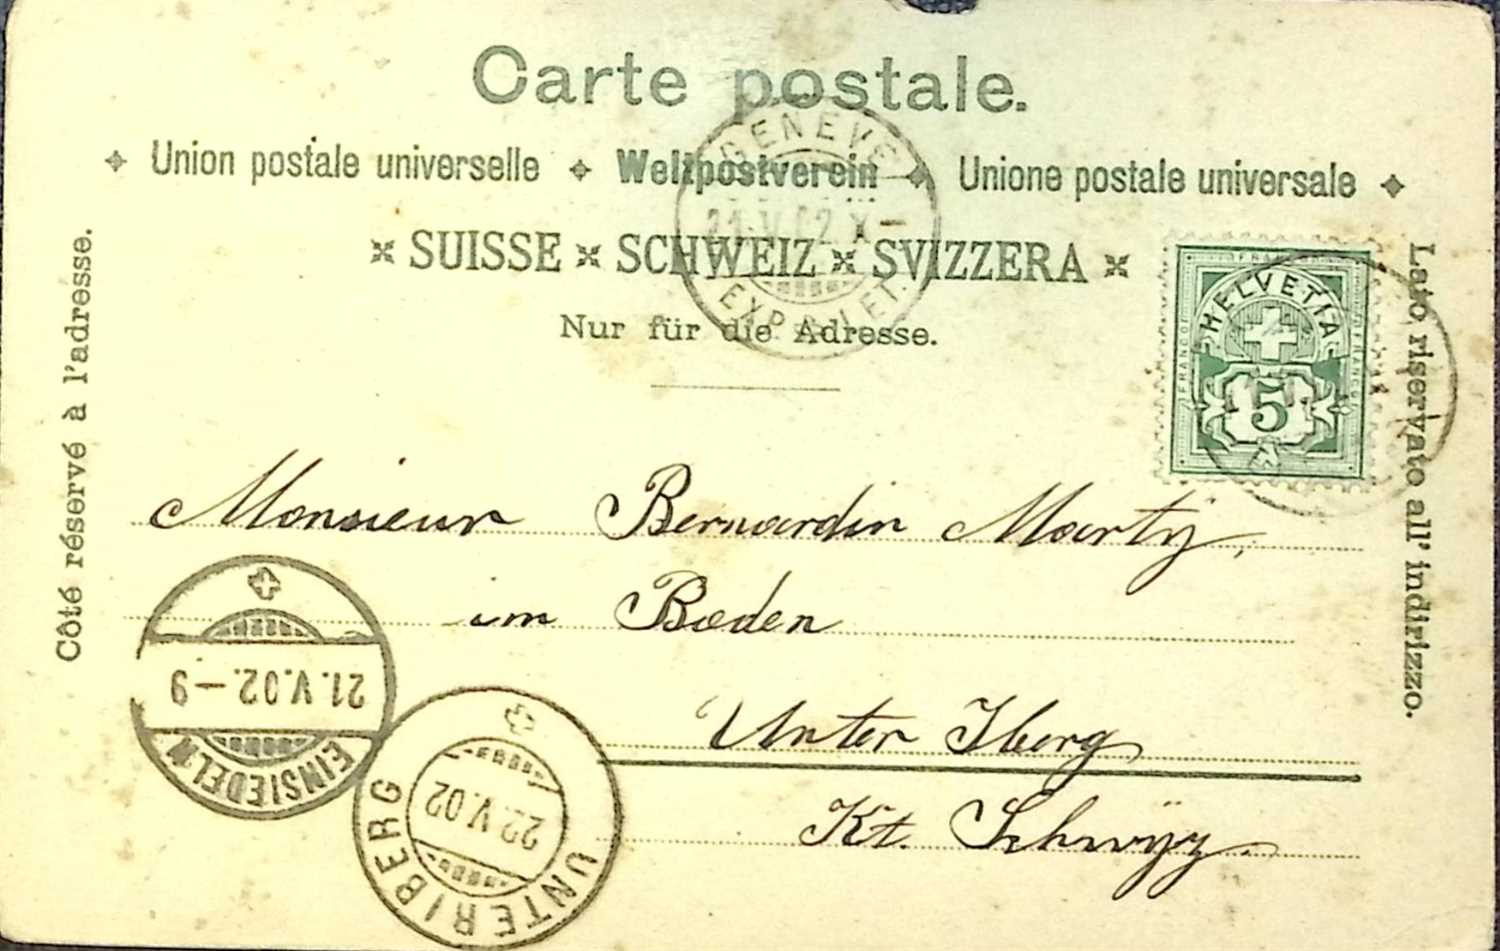 Carte postale.
Union postale universelle Weltpostverein Unione postale universale
SUISSE SCHWEIZ SVIZZERA
Nur für die Adresse.
Côté réservé à l'adresse.
Lato riservato all' indirizzo.
GENÈVE
21.V.02.X–
EXP. LET.
HELVETIA
FRANCO
5
Monsieur Bernardin Marty,
im Boden
Unter Iberg
Kt. Schwÿz.
21.V.02.–9
EINSIEDELN
22.V.02
UNTERIBERG